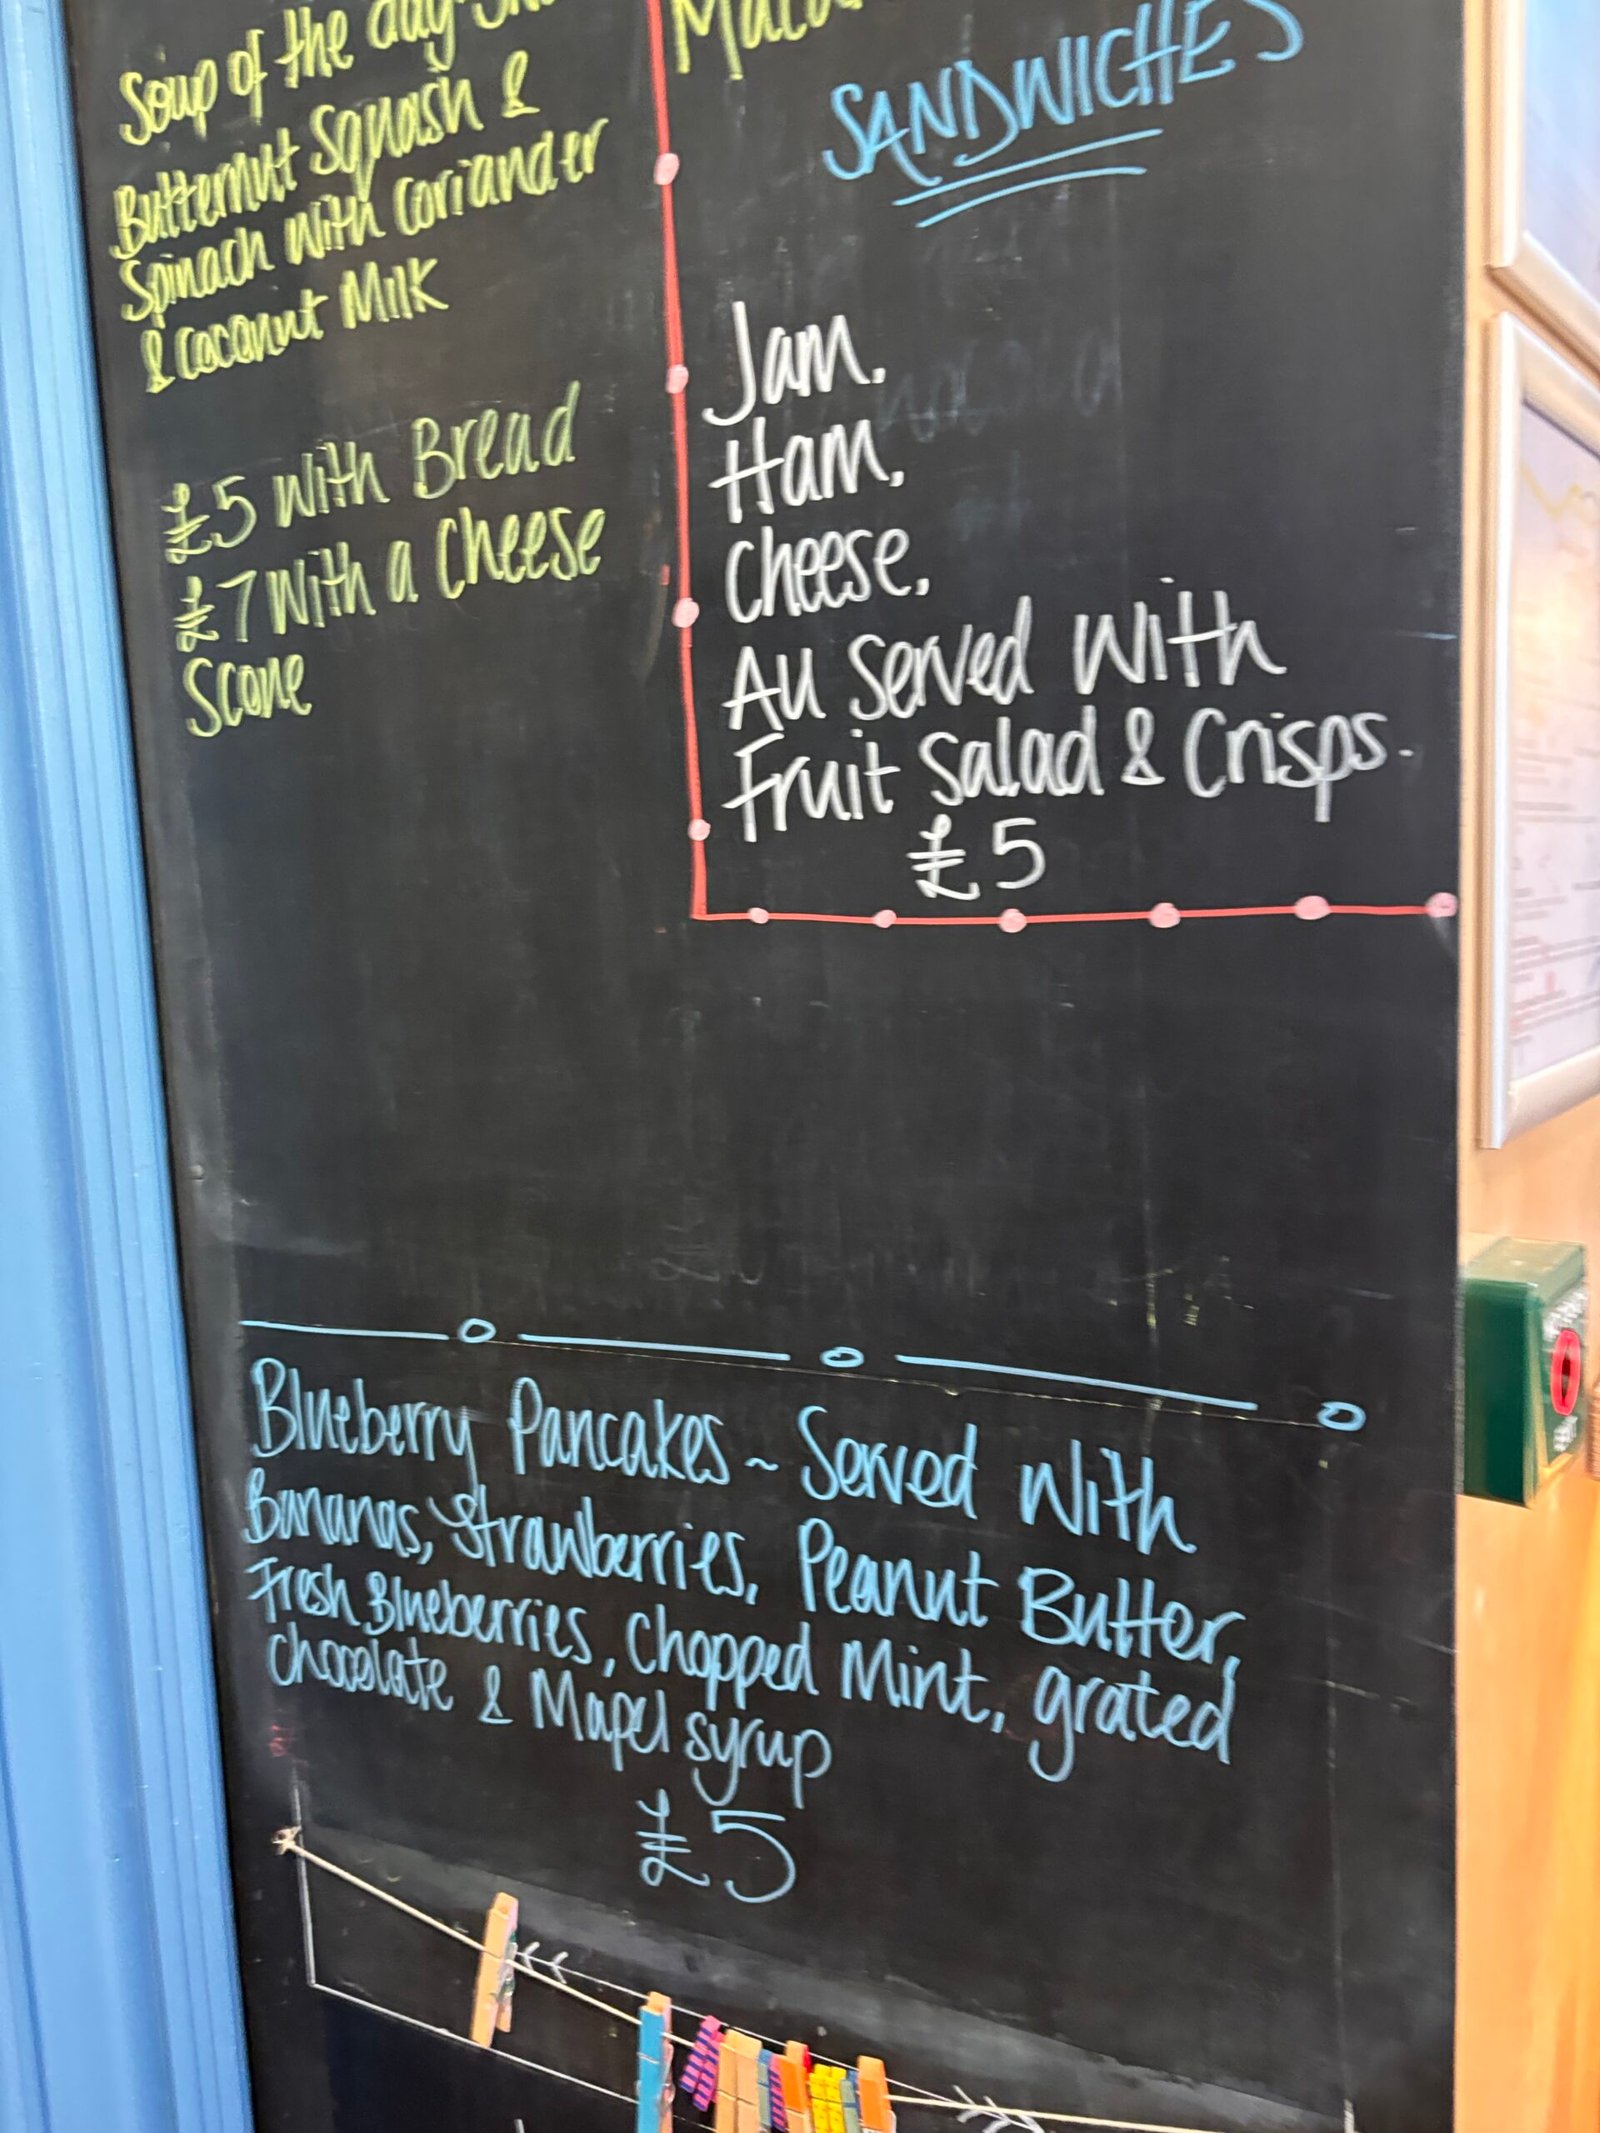 Soup of the day
Butternut Squash &
Spinach with Coriander
& Coconut Milk
£5 with Bread
£7 with a Cheese
Scone
SANDWICHES
Jam,
Ham,
Cheese,
All Served With
Fruit Salad & Crisps.
£5
Blueberry Pancakes ~ Served With
Bananas, Strawberries, Peanut Butter,
Fresh Blueberries, Chopped Mint, grated
Chocolate & Mapel syrup
£5